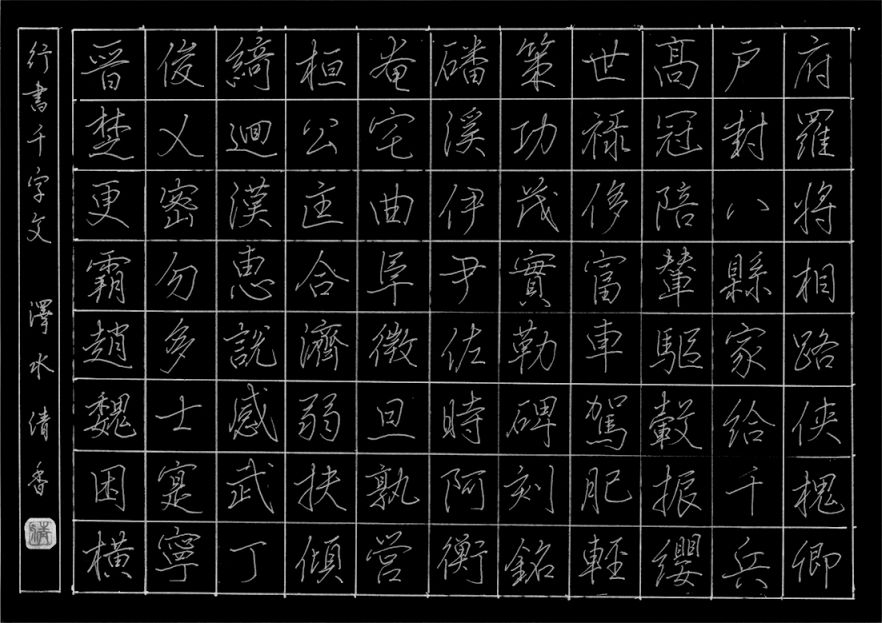 府羅將相路俠槐卿
戶封八縣家給千兵
髙冠陪輦驅轂振纓
世祿侈富車駕肥輕
策功茂實勒碑刻銘
磻溪伊尹佐時阿衡
奄宅曲阜微旦孰営
桓公匡合濟弱扶傾
綺迴漢恵說感武丁
俊乂密勿多士寔寧
晉楚更霸趙魏困橫
行書千字文 澤水倩香